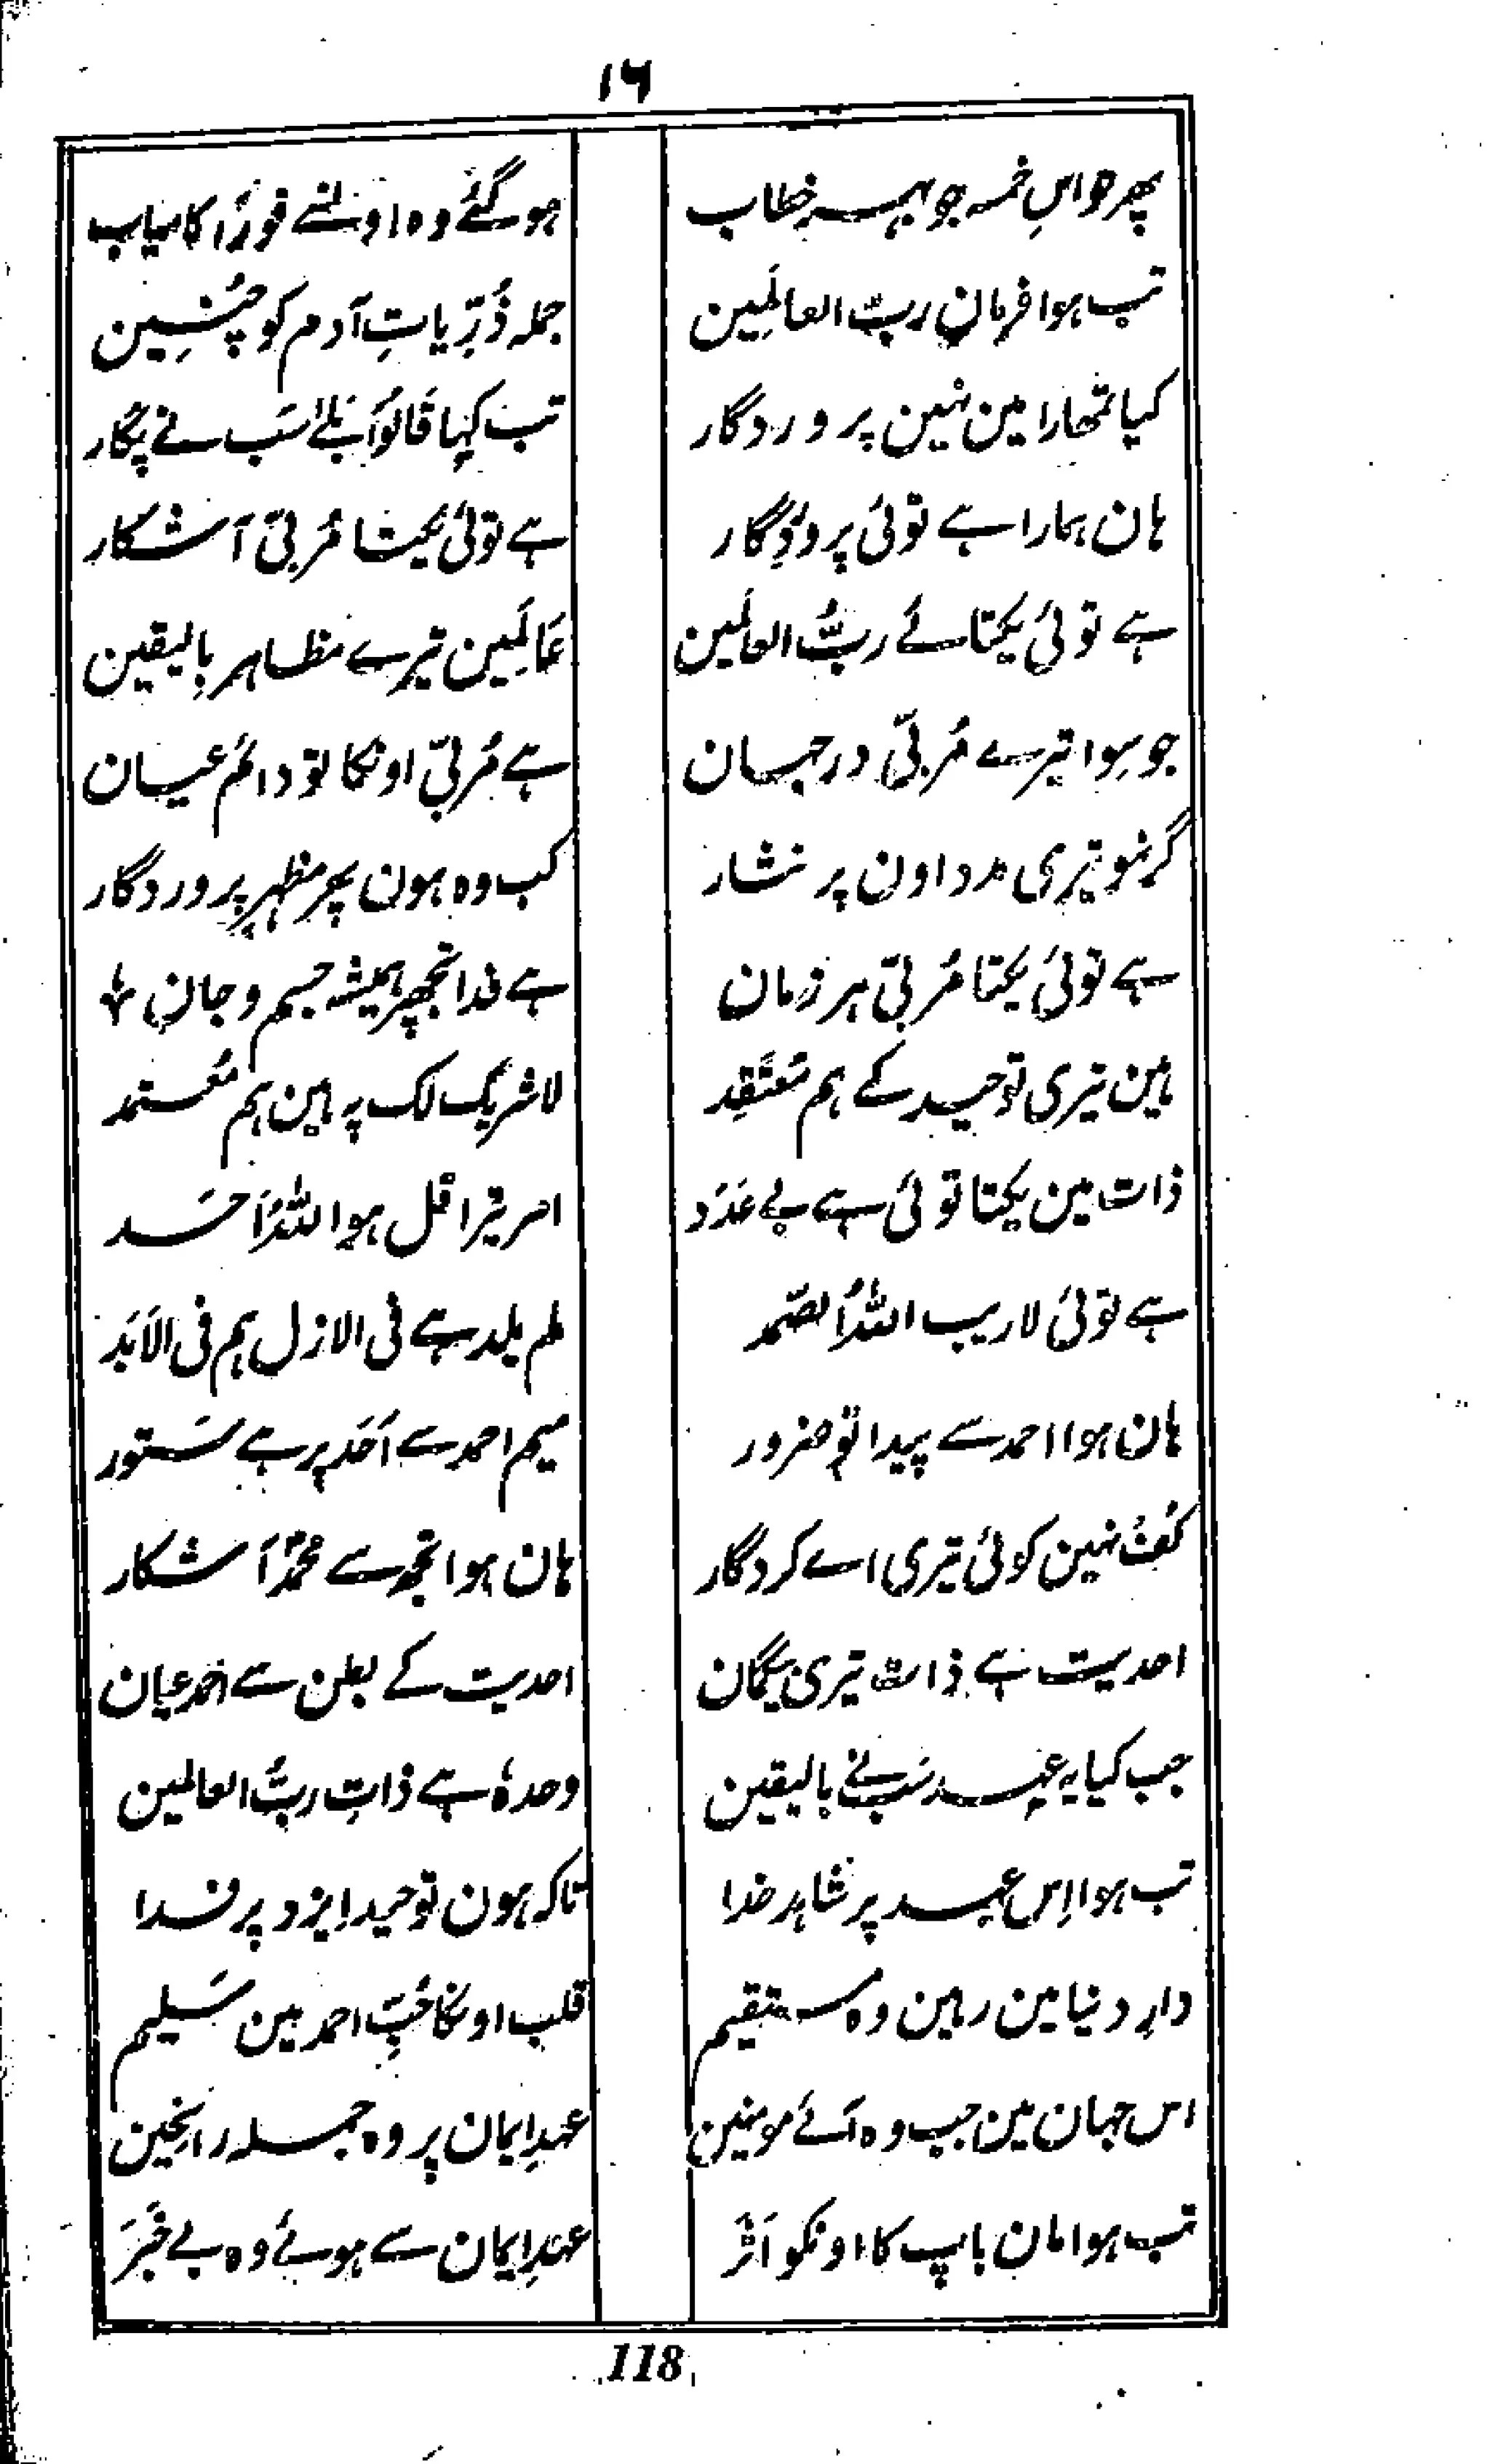 ۱۶
پھر حواسِ خمسہ جو بہر خطاب
ہو گئے وہ اونسے فوراً کامیاب
تب ہوا فرمانِ ربّ العالَمِین
جملہ ذُرّیاتِ آدم کو چُنِین
کیا تمھارا مین نہین پروردگار
تب کہا قَالُوا بَلےٰ سَب نے پُکار
ہان ہمارا ہے توئی پروردِگار
ہے توئی یکتا مُربّی آشکار
ہے توئی یکتائے ربُّ العالَمین
عَالَمِین تیرے مظاہر بِالیقین
جو سِوا تیرے مُربّی در جہان
ہے مُربّی اونکا تو دائم عیان
گر نہو تیری مدد اون پر نثار
کب وہ ہون پھر مظہرِ پروردگار
ہے توئی یکتا مُربّی ہر زمان
ہے فدا تجھپر ہمیشہ جسم و جان
ہین تیری توحید کے ہم مُعتَقِد
لا شریک لک پہ ہین ہم مُعتمد
ذات مین یکتا توئی ہے بے عَدَد
امر تیرا قل ہو اللہُ اَحَد
ہے توئی لاریب اللہُ الصّمد
لم یلد ہے فی الازل ہم فی الاَبَد
ہان ہوا احمد سے پیدا تو ضرور
میم احمد سے اَحَد پر ہے سَتور
کُفُ نہین کوئی تیری اے کردگار
ہان ہوا تجھ سے محمدؐ آشکار
احدیت ہے ذات تیری بیگمان
احدیت کے بطن سے احمد عیان
جب کیا یہ عہد سَب نے بالیقین
وحدہٗ ہے ذاتِ ربُّ العالمین
تب ہوا اِس عہد پر شاہد خدا
تاکہ ہون توحید ایزد پر فدا
دارِ دنیا مین رہین وہ مستقیم
قلب اونکا حُبِّ احمد مین سَلیم
اس جہان مین جب وہ آئے مومنین
عہدِ ایمان پر وہ جملہ راسخین
تب ہوا مان باپ کا اونکو اَثر
عہدِ ایمان سے ہوئے وہ بے خَبَر
118